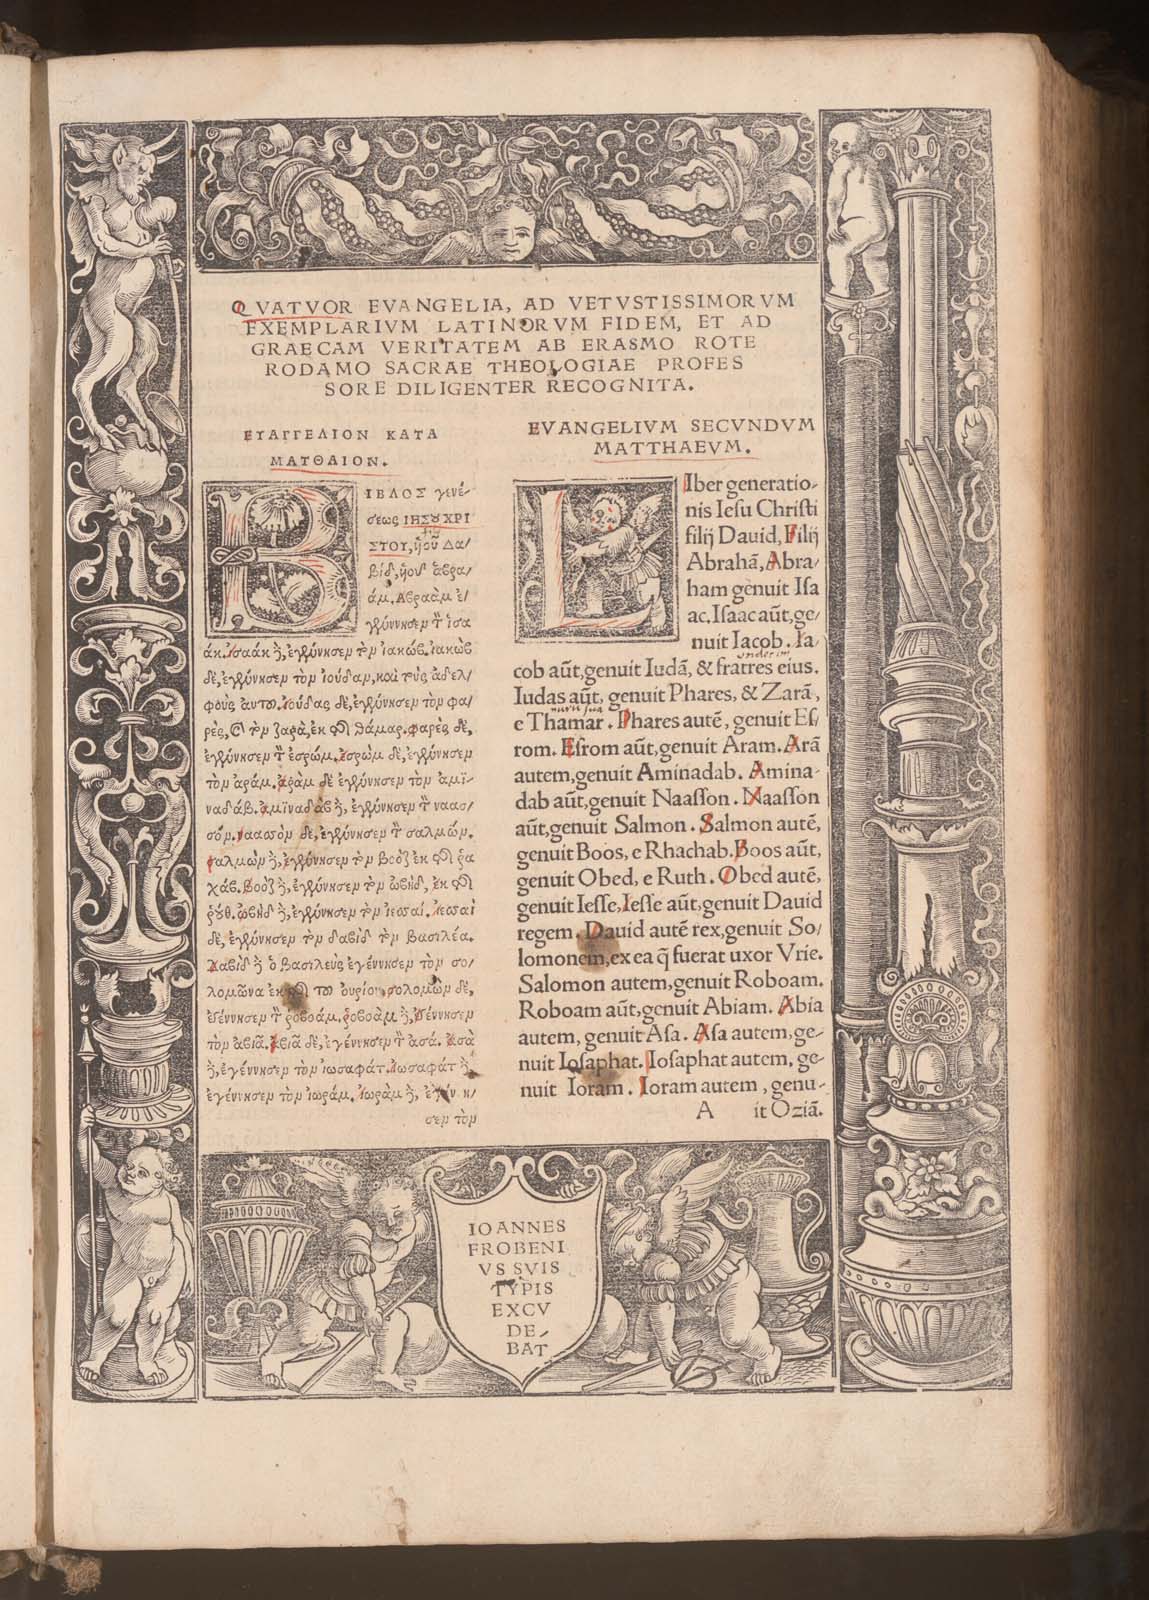 QVATVOR EVANGELIA, AD VETVSTISSIMORVM
EXEMPLARIVM LATINORVM FIDEM, ET AD
GRAECAM VERITATEM AB ERASMO ROTE
RODAMO SACRAE THEOLOGIAE PROFES
SORE DILIGENTER RECOGNITA.
ΕΥΑΓΓΕΛΙΟΝ ΚΑΤΑ
ΜΑΤΘΑΙΟΝ.
ΒΙΒΛΟΣ γενέ-
σεως ΙΗΣΟΥ ΧΡΙ
ΣΤΟΥ, ἡοῦ Δα/
βίδ, ἡοῦ ἀβρα/
άμ. Αβραὰμ ἐ/
γέννησεμ τὸν ἰσα
άκ. ἰσαάκ δὲ, ἐγέννησεμ τὸμ ἰακώβ. ἰακὼβ
δὲ, ἐγέννησεμ τὸμ ἰούδαμ, καὶ τοὺς ἀδελ/
φοὺς αὐτοῦ. ἰούδας δὲ, ἐγέννησεμ τὸμ φα/
ρὲς, καὶ τὸμ ζαρὰ, ἐκ τῆς θάμαρ. φαρὲς δὲ,
ἐγέννησεμ τὸν ἐσρώμ. ἐσρὼμ δὲ, ἐγέννησεμ
τὸμ ἀράμ. ἀρὰμ δὲ ἐγέννησεμ τὸμ ἀμϊ-
ναδάβ. ἀμϊναδὰβ δὲ, ἐγέννησεμ τὸν ναασ-
σόμ. ναασσὸμ δὲ, ἐγέννησεμ τὸν σαλμώμ.
σαλμὼμ δὲ, ἐγέννησεμ τὸμ βοὸζ ἐκ τῆς ῥα
χάβ. βοὸζ δὲ, ἐγέννησεμ τὸμ ὠβὴδ, ἐκ τῆς
ῥούθ. ὠβὴδ δὲ, ἐγέννησεμ τὸμ ἰεσσαί. ἰεσσαὶ
δὲ, ἐγέννησεμ τὸμ δαβὶδ τὸμ βασιλέα.
Δαβὶδ δὲ ὁ βασιλεὺς ἐγέννησεμ τὸμ σο/
λομῶνα ἐκ τῆς τοῦ οὐρίου. σολομὼμ δὲ,
ἐγέννησεμ τὸν ῥοβοάμ. ῥοβοὰμ δὲ, ἐγέννησεμ
τὸμ ἀβιᾶ. ἀβιᾶ δὲ, ἐγέννησεμ τὸν ἀσά. ἀσὰ
δὲ, ἐγέννησεμ τὸμ ἰωσαφάτ. ἰωσαφὰτ δὲ
ἐγέννησεμ τὸμ ἰωράμ. ἰωρὰμ δὲ, ἐγέννη/
σεμ τὸμ
EVANGELIVM SECVNDVM
MATTHAEVM.
LIber generatio-
nis Iesu Christi
filij Dauid, Filij
Abrahã, Abra/
ham genuit Isa
ac. Isaac aũt, ge-
nuit Iacob. Ia/
cob aũt, genuit Iudã, & fratres eius.
Iudas aũt, genuit Phares, & Zarã,
e Thamar. Phares autẽ, genuit Es/
rom. Esrom aũt, genuit Aram. Arã
autem, genuit Aminadab. Amina-
dab aũt, genuit Naasson. Naasson
aũt, genuit Salmon. Salmon autẽ,
genuit Boos, e Rhachab. Boos aũt,
genuit Obed, e Ruth. Obed autẽ,
genuit Iesse, Iesse aũt, genuit Dauid
regem. Dauid autẽ rex, genuit So/
lomonem, ex ea q̃ fuerat uxor Vrie.
Salomon autem, genuit Roboam.
Roboam aũt, genuit Abiam. Abia
autem, genuit Asa. Asa autem, ge-
nuit Iosaphat. Iosaphat autem, ge-
nuit Ioram. Ioram autem, genu-
A it Oziã.
IOANNES
FROBENI
VS SVIS
TYPIS
EXCV
DE/
BAT